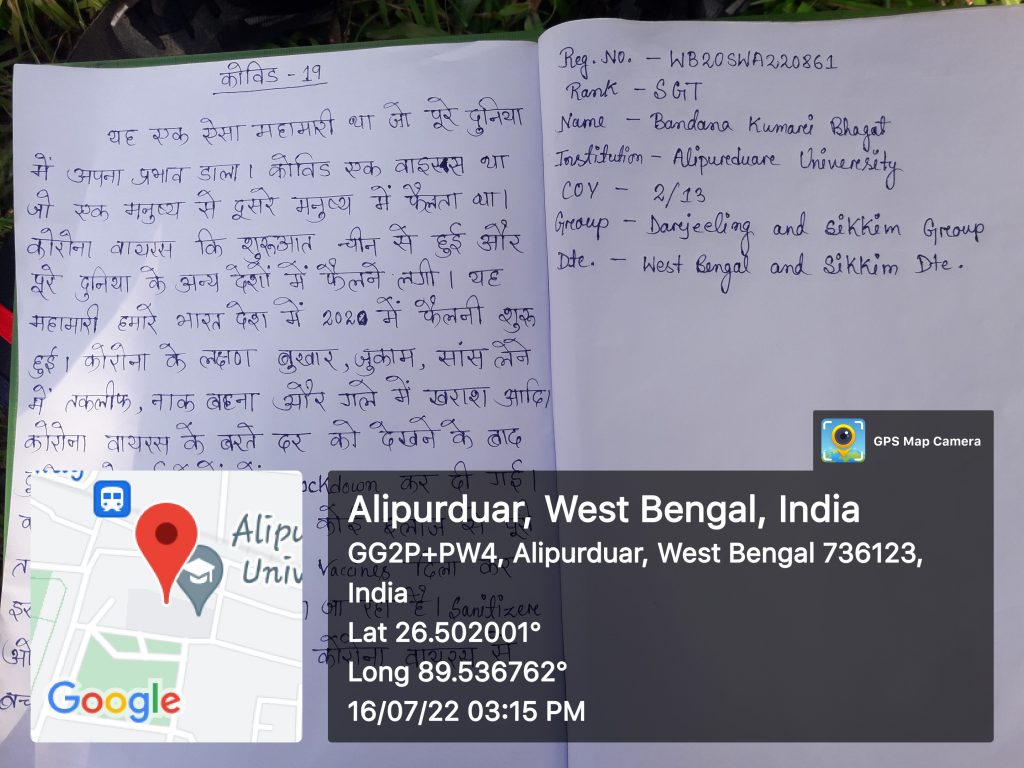 कोविड - 19
यह एक ऐसा महामारी था जो पूरे दुनिया
में अपना प्रभाव डाला। कोविड एक वाइरस था
जो एक मनुष्य से दूसरे मनुष्य में फैलता था।
कोरोना वायरस कि शुरूआत चीन से हुई और
पूरे दुनिया के अन्य देशों में फैलने लगी। यह
महामारी हमारे भारत देश में 2020 में फैलनी शुरू
हुई। कोरोना के लक्षण बुखार, जुकाम, सांस लेने
में तकलीफ, नाक बहना और गले में खराश आदि।
कोरोना वायरस के बरते दर को देखने के बाद
ockdown कर दी गई।
कोई इलाज
Vaccines दिला कर
जा रहा है। Sanitizere
कोरोना वायरस से
Reg. No. - WB20SWA220861
Rank - SGT
Name - Bandana Kumari Bhagat
Institution - Alipurduare Univeresity
COY - 2/13
Group - Darjeeling and Sikkim Group
Dte. - West Bengal and Sikkim Dte.
GPS Map Camera
Alipurduar, West Bengal, India
GG2P+PW4, Alipurduar, West Bengal 736123,
India
Lat 26.502001°
Long 89.536762°
16/07/22 03:15 PM
Alipu
Univ
Google